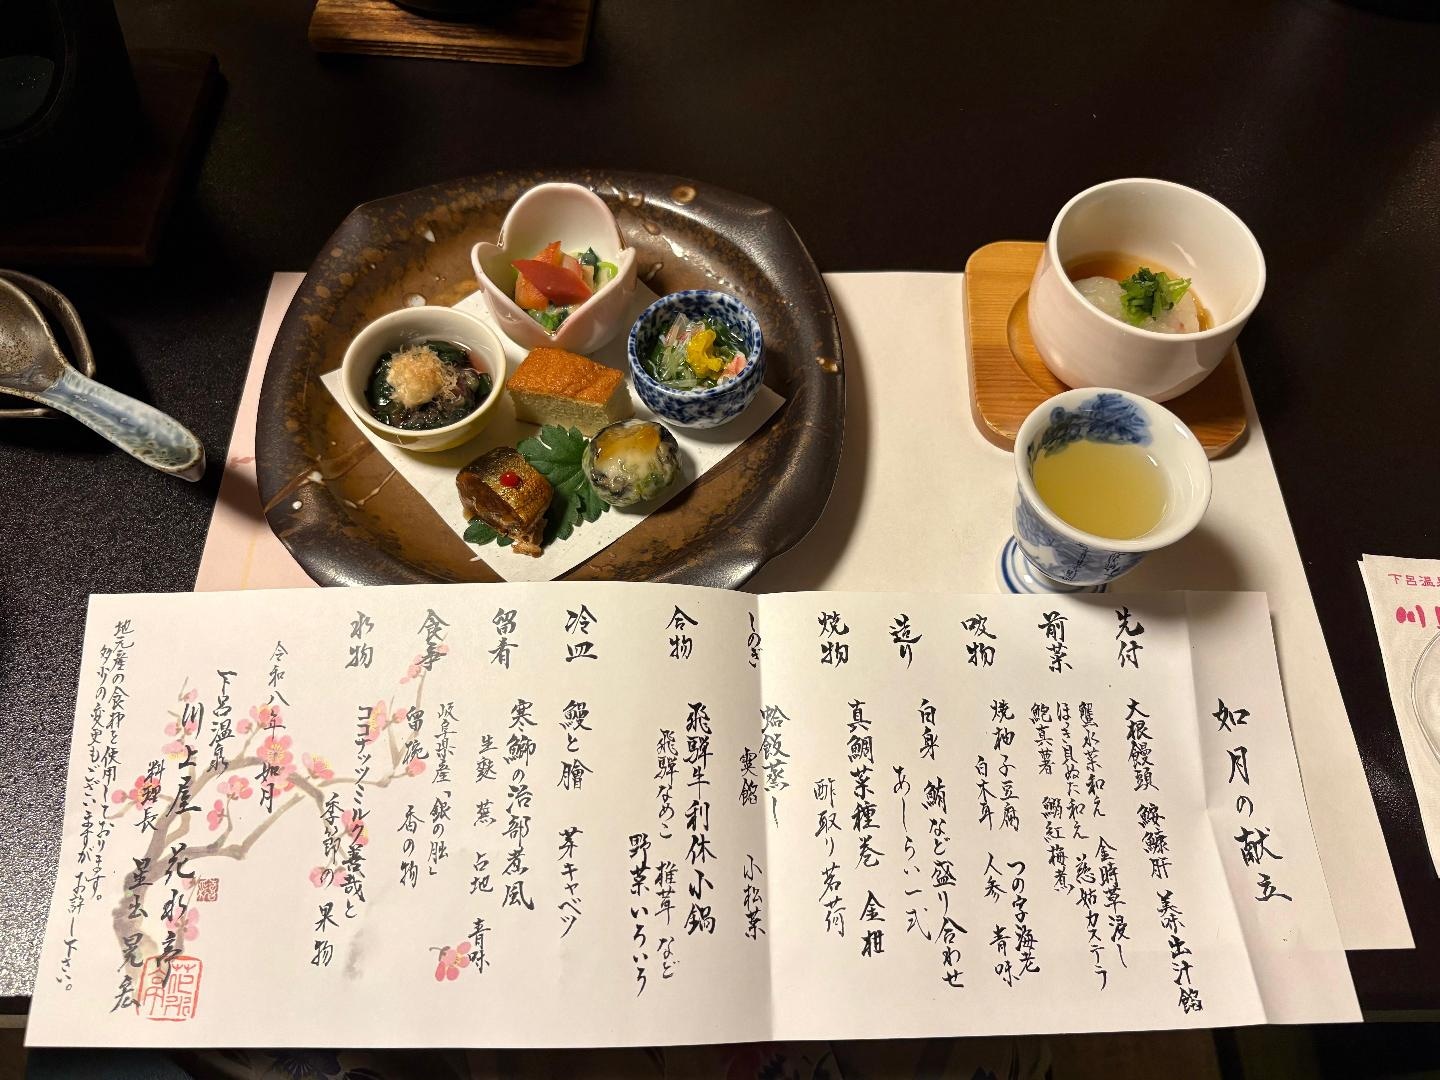 如月の献立
先付
大根饅頭 鮟鱇肝 美味出汁餡
前菜
蟹水菜和え 金時草浸し
ほっき貝ぬた和え 慈姑カステラ
鮑真薯 鰯紅梅煮
吸物
焼柚子豆腐 つの字海老
白木耳 人参 青味
造り
白身 鮪など盛り合わせ
あしらい一式
焼物
真鯛菜種巻 金柑
酢取り茗荷
しのぎ
蛤飯蒸し
小松菜
合物
飛騨牛利休小鍋
飛騨なめこ 椎茸など
野菜いろいろ
冷皿
鰻と膾 芽キャベツ
留肴
寒鰤の治部煮風
生麩 蕪 占地 青味
食事
岐阜県産「銀の朏」
留椀 香の物
水物
ココナッツミルク善哉と
季節の果物
令和八年 如月
下呂温泉
川上屋 花水亭
料理長
地元産の食材を使用しております。
多少の変更もございますがお許し下さい。
下呂温泉